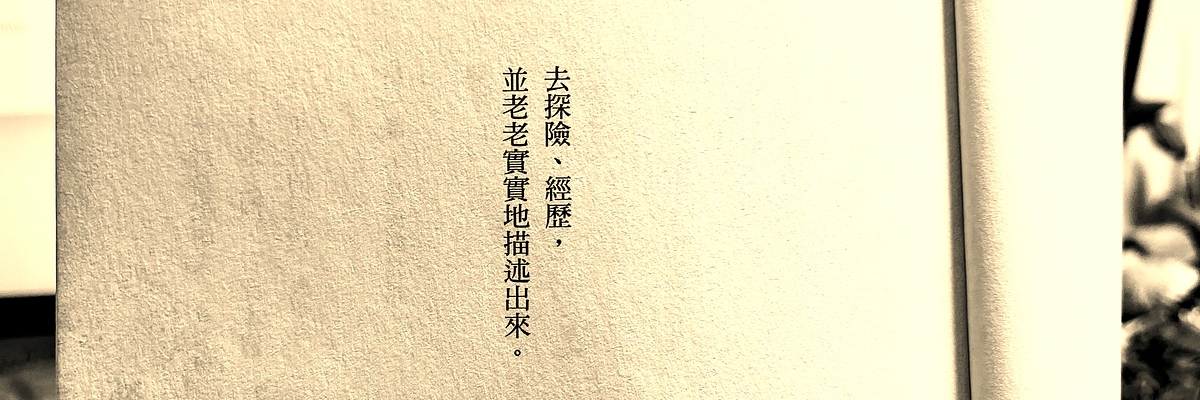 去探險、經歷，
並老老實實地描述出來。